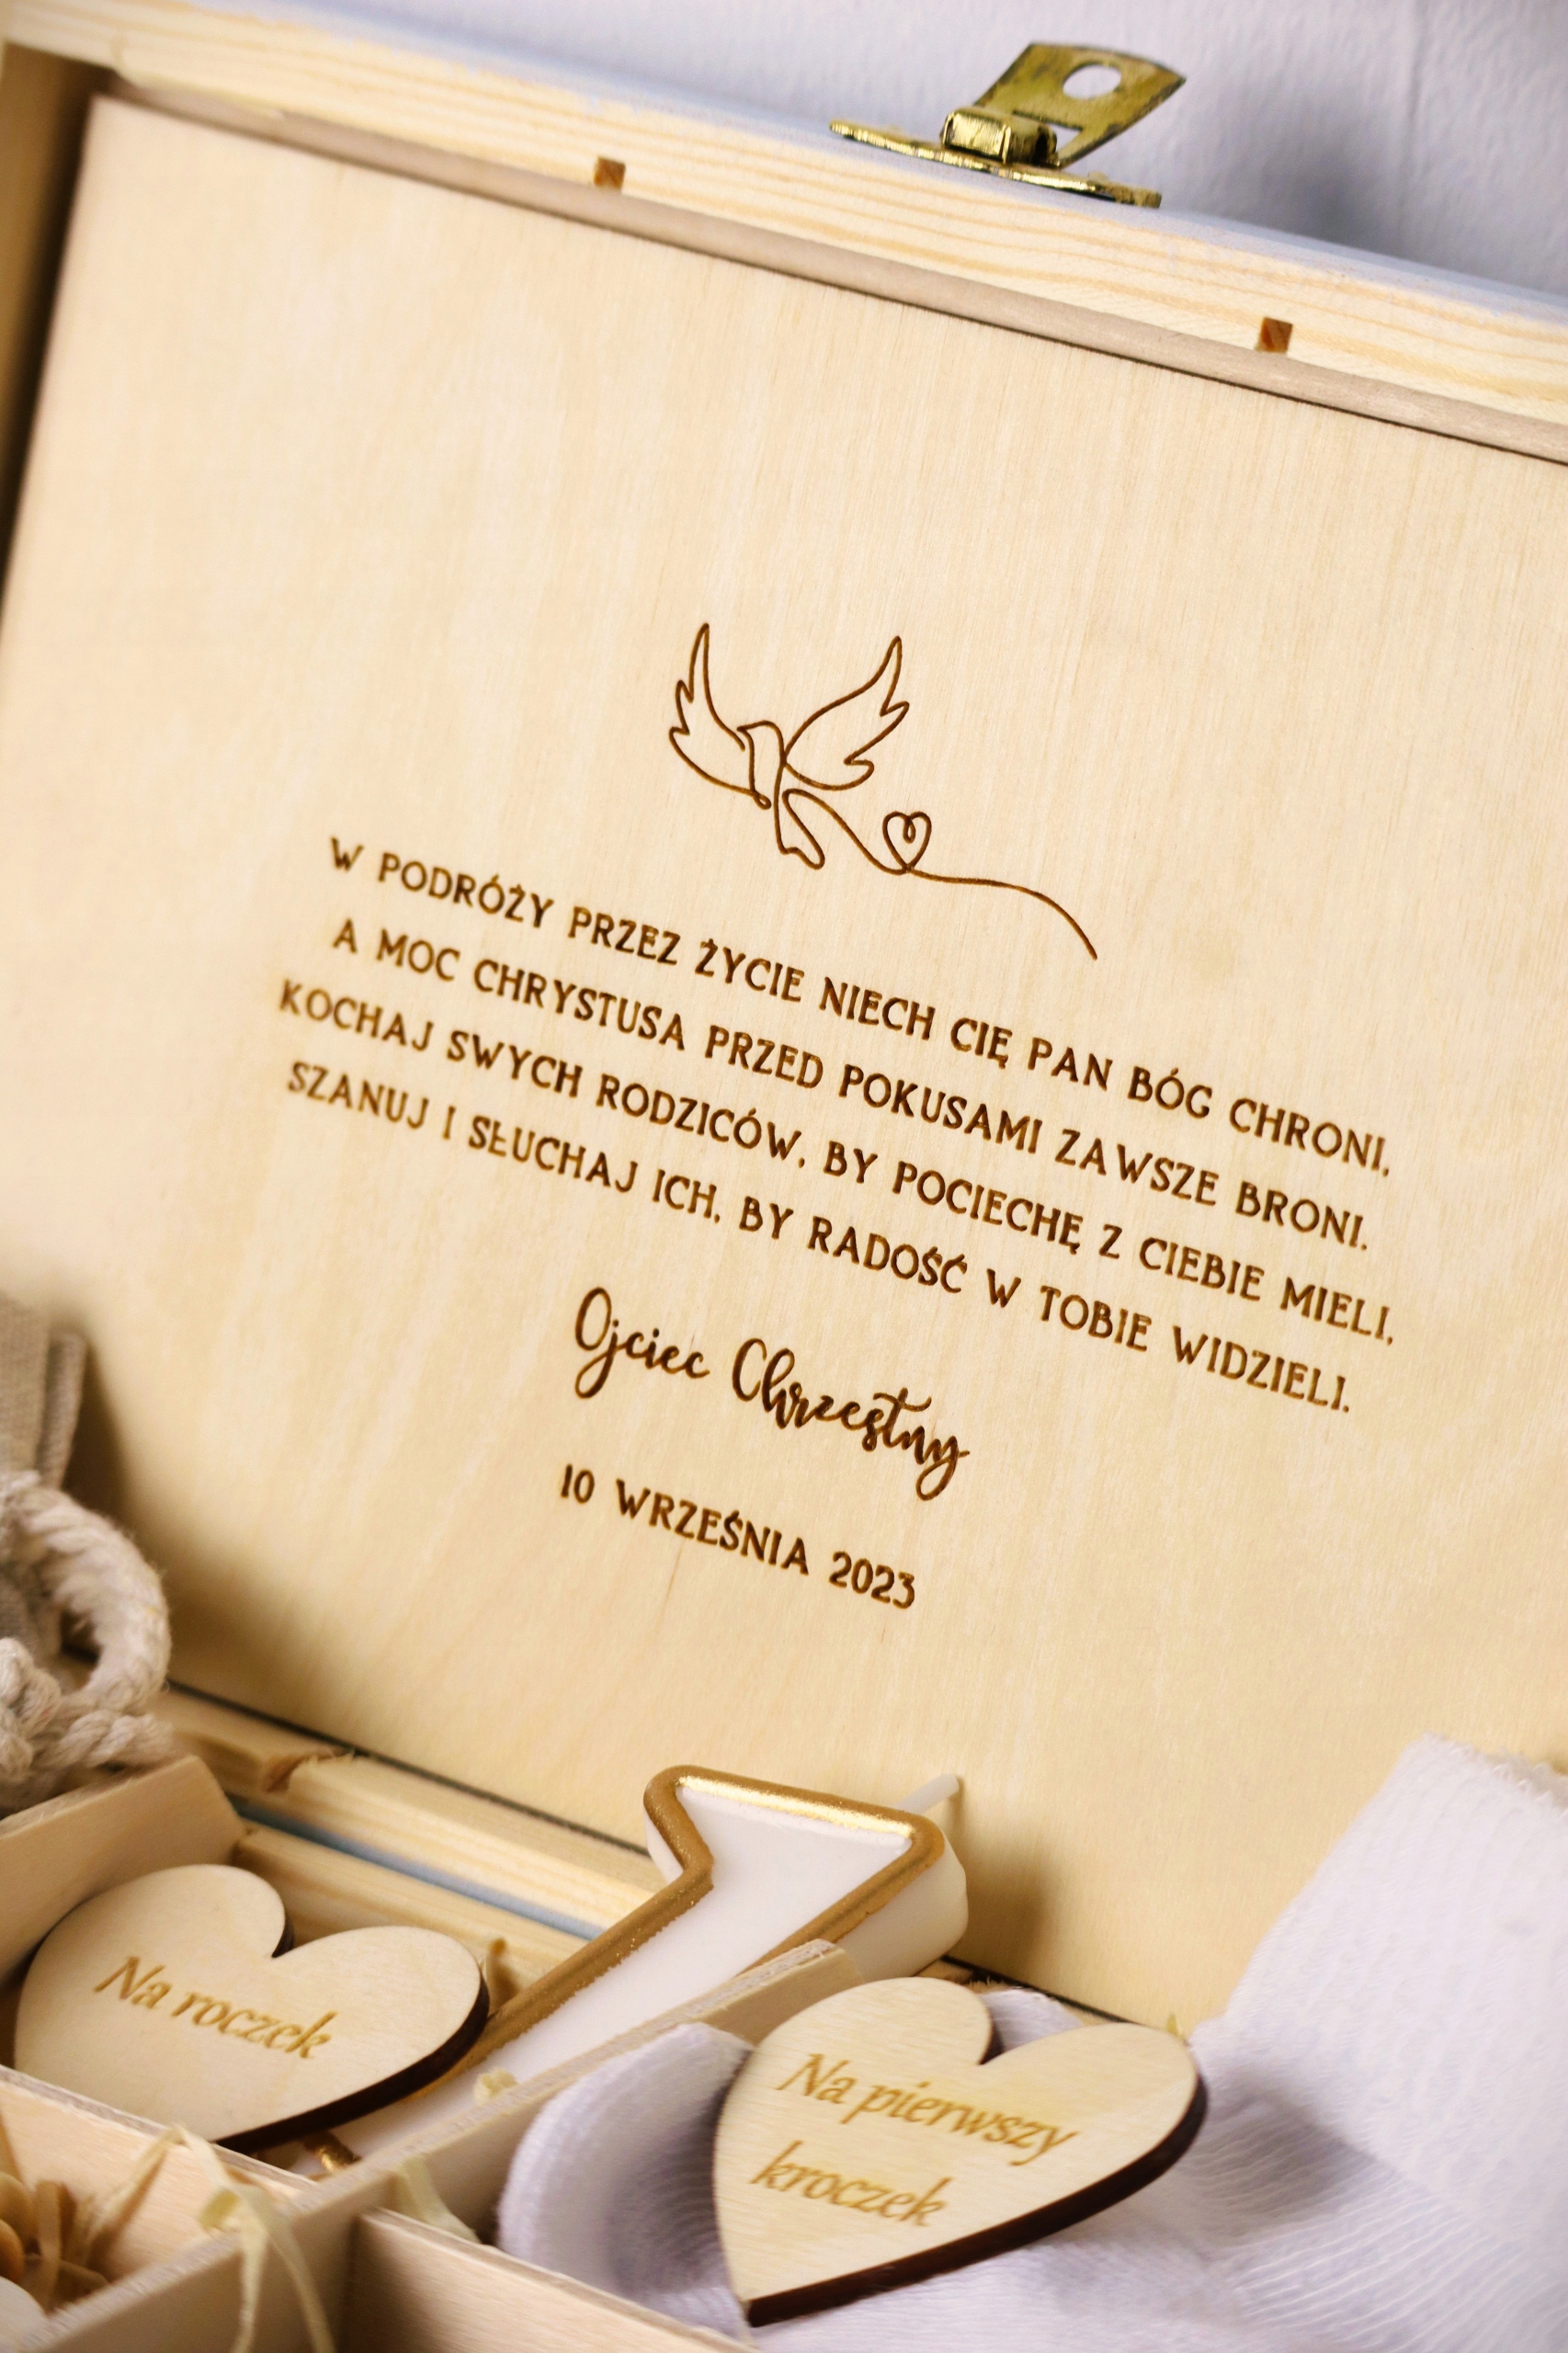 W PODRÓŻY PRZEZ ŻYCIE NIECH CIĘ PAN BÓG CHRONI,
A MOC CHRYSTUSA PRZED POKUSAMI ZAWSZE BRONI.
KOCHAJ SWYCH RODZICÓW, BY POCIECHĘ Z CIEBIE MIELI,
SZANUJ I SŁUCHAJ ICH, BY RADOŚĆ W TOBIE WIDZIELI.
Ojciec Chrzestny
10 WRZEŚNIA 2023
Na roczek
Na pierwszy
kroczek